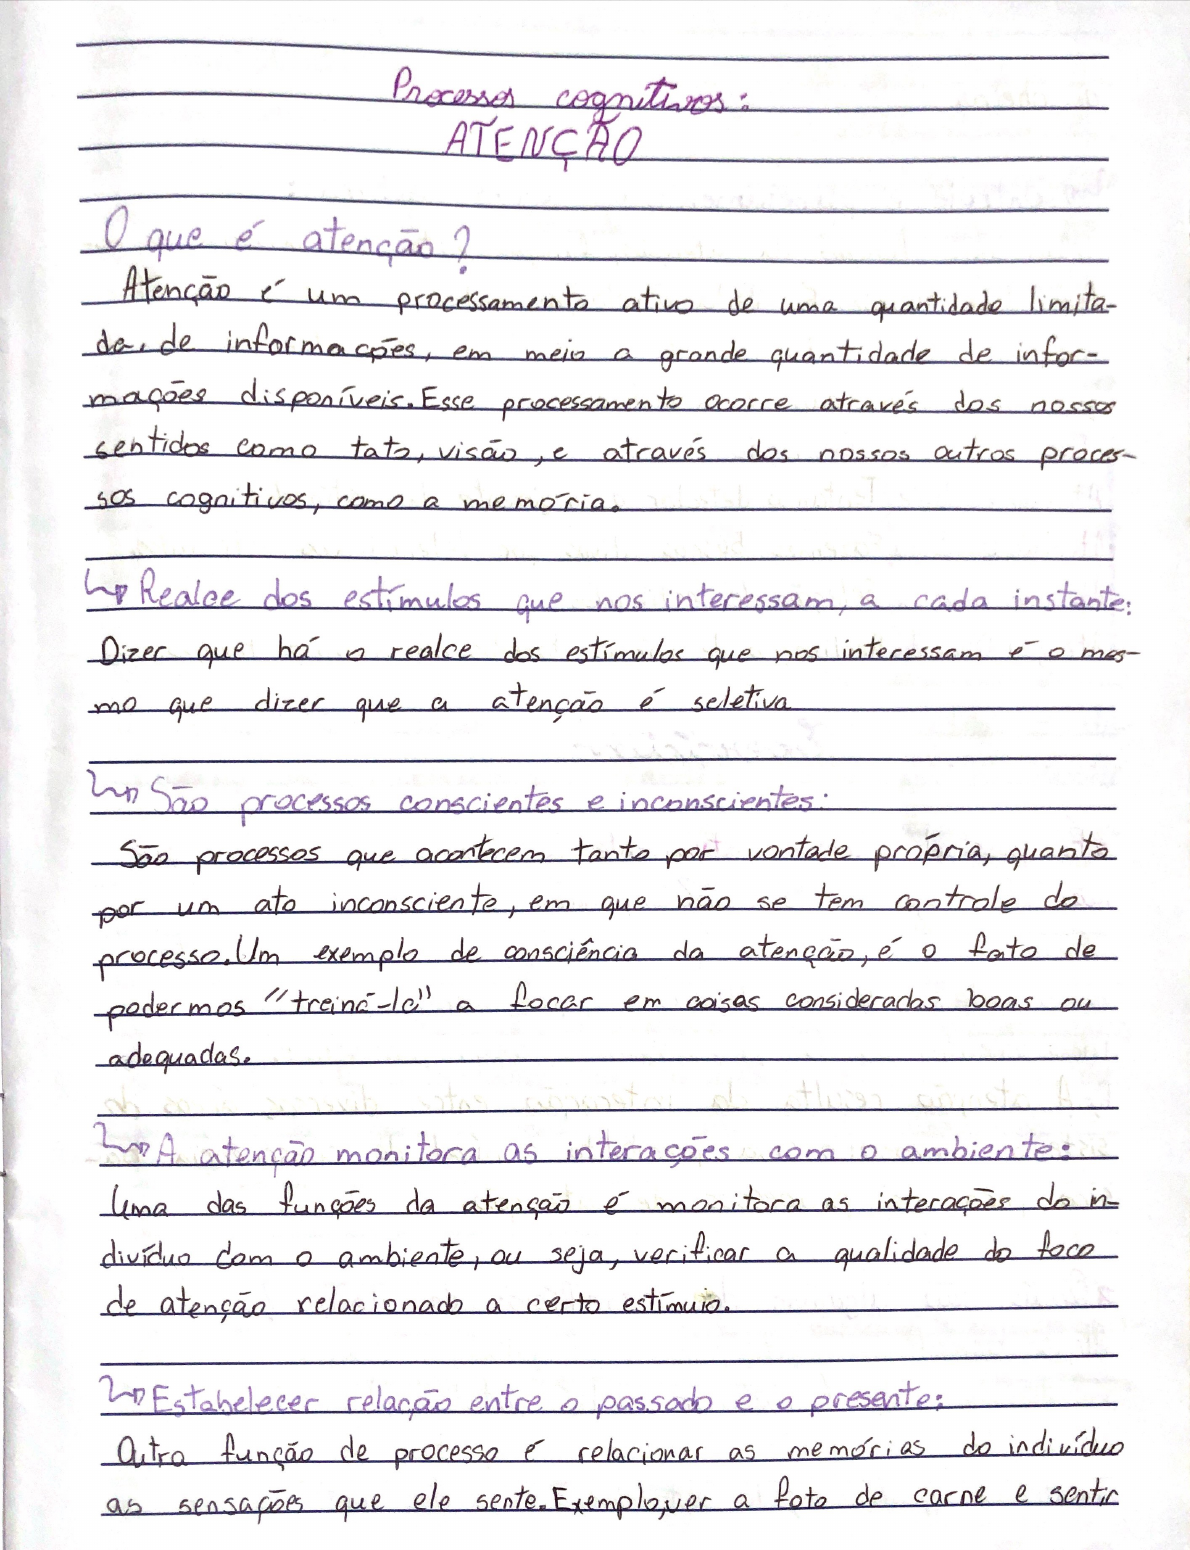 Processos cognitivos:
ATENÇÃO
O que é atenção?
Atenção é um processamento ativo de uma quantidade limita-
da, de informações, em meio a grande quantidade de infor-
mações disponíveis. Esse processamento ocorre através dos nossos
sentidos como tato, visão, e através dos nossos outros proces-
sos cognitivos, como a memória.
↳ Realce dos estímulos que nos interessam, a cada instante:
Dizer que há o realce dos estímulos que nos interessam é o mes-
mo que dizer que a atenção é seletiva
↳ São processos conscientes e inconscientes:
São processos que acontecem tanto por vontade própria, quanto
por um ato inconsciente, em que não se tem controle do
processo. Um exemplo de consciência da atenção, é o fato de
podermos "treiná-la" a focar em coisas consideradas boas ou
adequadas.
↳ A atenção monitora as interações com o ambiente:
Uma das funções da atenção é monitora as interações do in-
divíduo com o ambiente, ou seja, verificar a qualidade do foco
de atenção relacionado a certo estímulo.
↳ Estabelecer relação entre o passado e o presente:
Outra função de processo é relacionar as memórias do indivíduo
as sensações que ele sente. Exemplo, ver a foto de carne e sentir